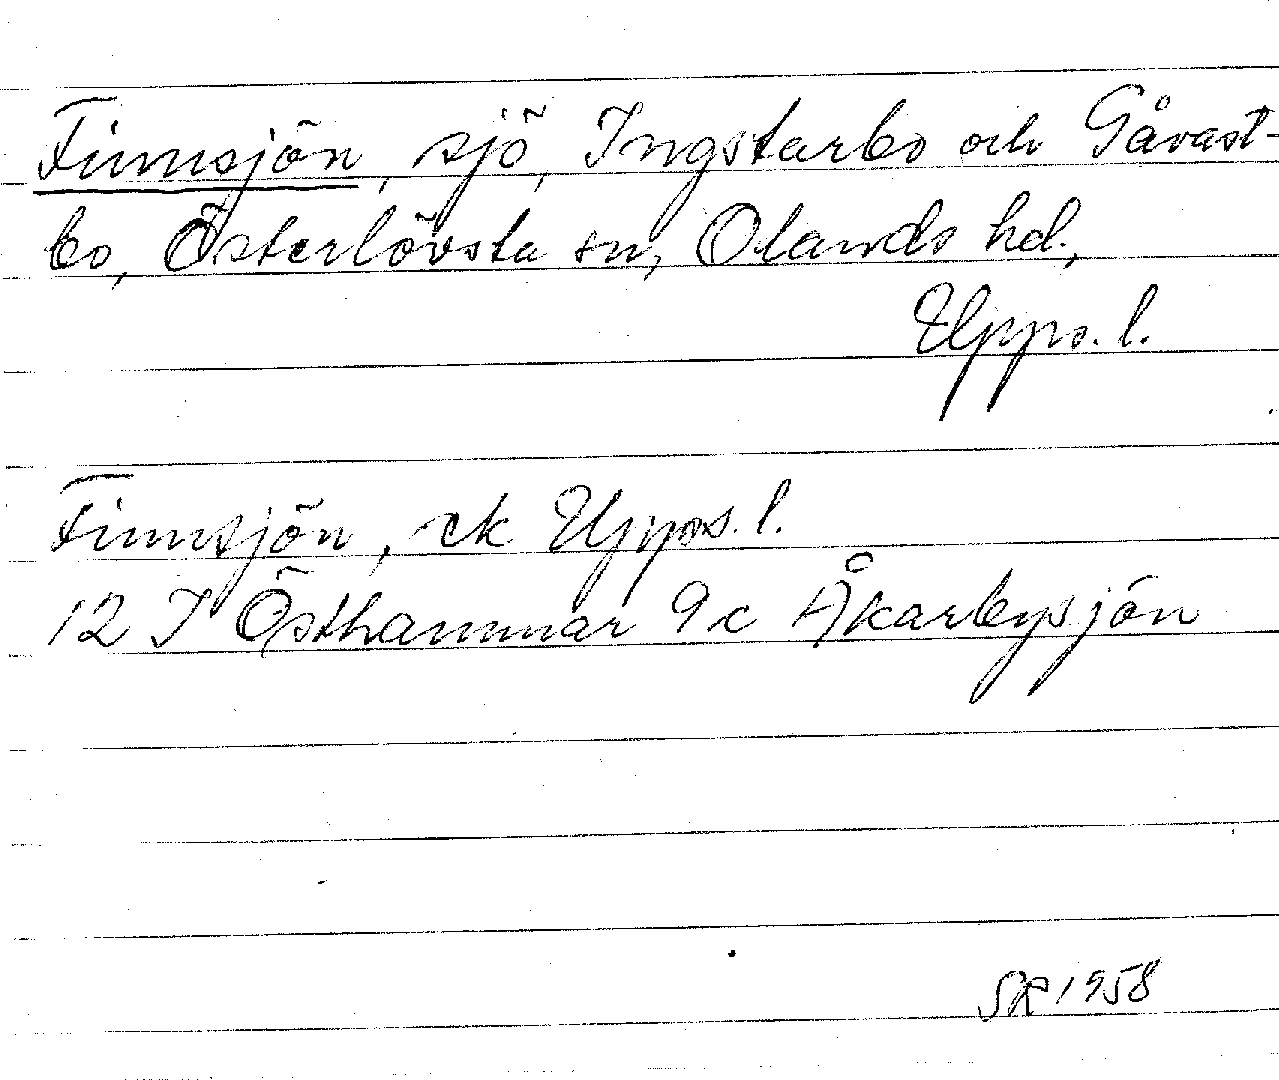 Finnsjön, sjö, Ingstarbo och Gåvast-
bo, Österlövsta sn, Olands hd.,
Upps. l.
Finnsjön, ek Upps. l.
12 I Östhammar 9c Åkarbysjön
SR 1958